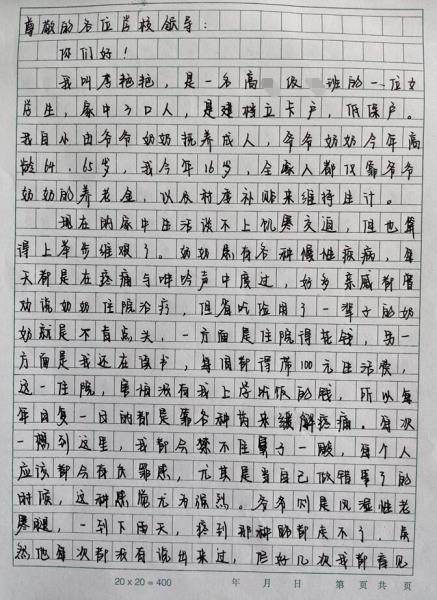 尊敬的各位学校领导：
你们好！
我叫李艳艳，是一名高 级 班的一位女
学生，家中3口人，是建档立卡户，低保户。
我自小由爷爷奶奶抚养成人，爷爷奶奶今年高
龄64、65岁，我今年16岁，全家人都仅靠爷爷
奶奶的养老金，以及村度补贴来维持生计。
现在的家中生活谈不上饥寒交迫，但也算
得上举步维艰了。奶奶患有各种慢性疾病，每
天都是在疼痛与呻吟声中度过，好多亲戚都曾
劝说奶奶住院治疗，但省吃俭用了一辈子的奶
奶就是不肯点头，一方面是住院得花钱，另一
方面是我还在读书，每周都得带100元生活费，
这一住院，害怕没有我上学吃饭的钱，所以每
年日复一日的都是靠各种药来缓解疼痛。每次
一想到这里，我都会禁不住鼻子一酸，每个人
应该都会有负罪感，尤其是当自己做错事了的
时候，这种感觉尤为强烈。爷爷则是风湿性老
寒腿，一到下雨天，疼到那种路都走不了，虽
然他每次都没有说出来过，但好几次我都看见
20×20=400 年 月 日 第 页 共 页